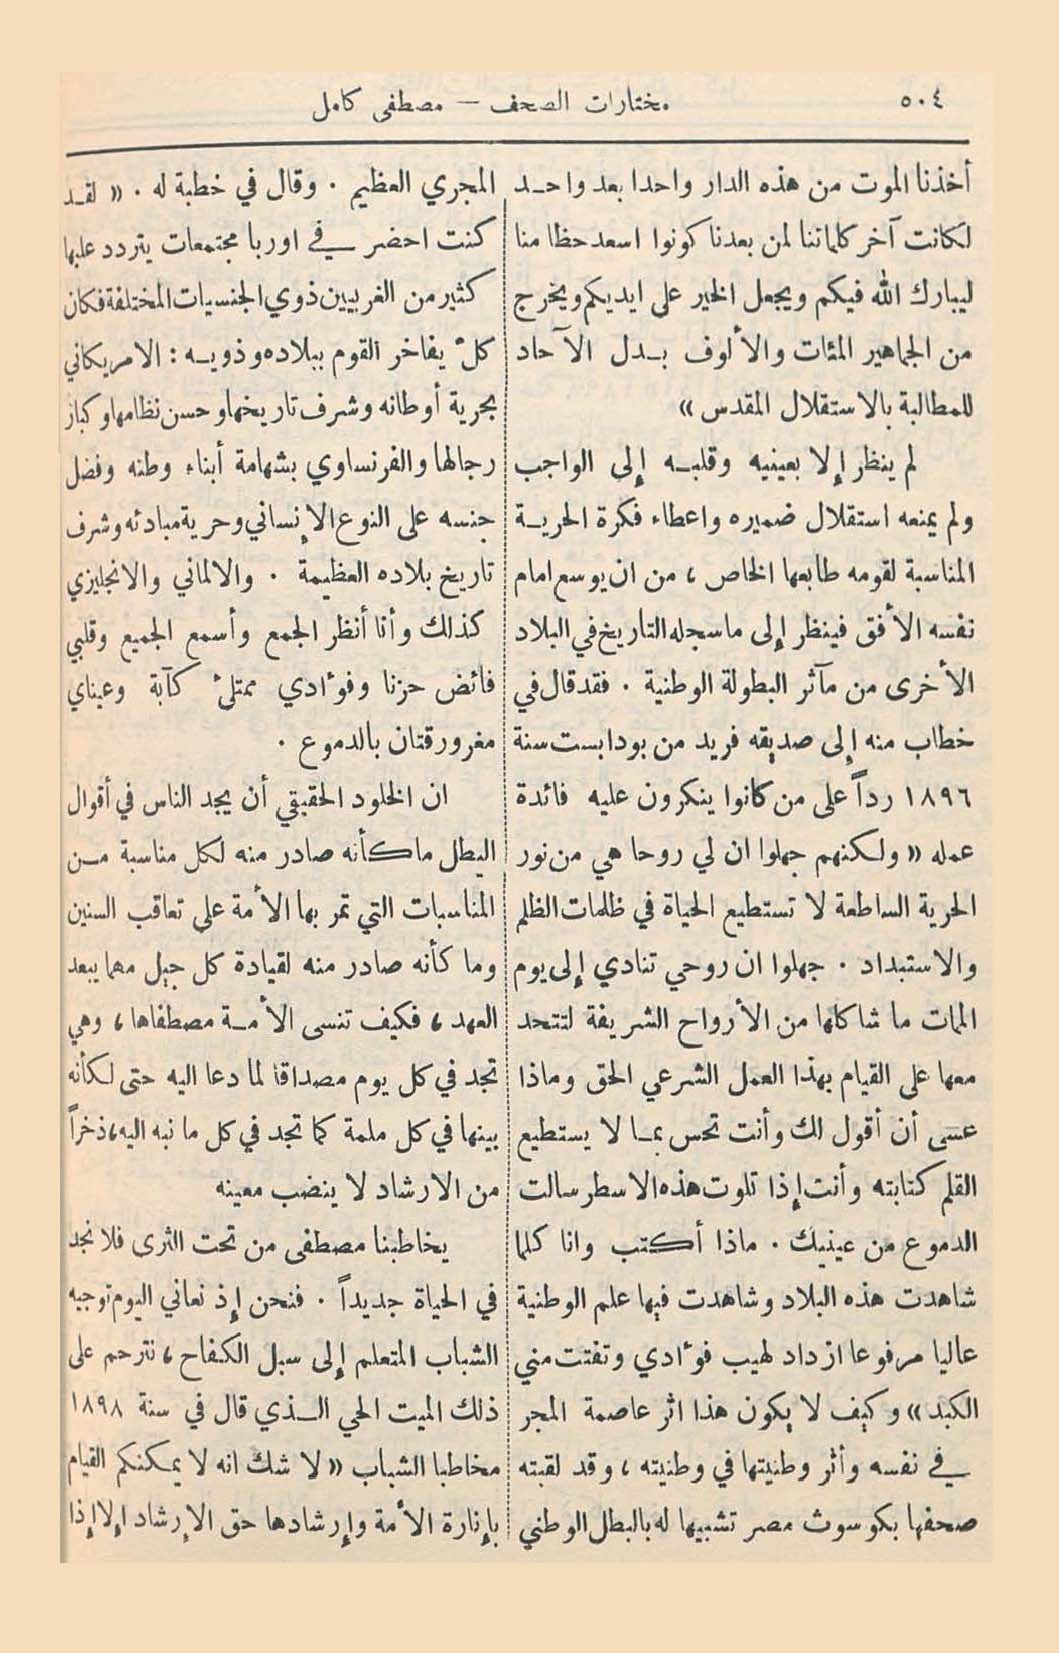 ٥٠٤
مختارات الصحف — مصطفى كامل
أخذنا الموت من هذه الدار واحدا بعد واحـد
لكانت آخر كلماتنا لمن بعدنا كونوا اسعد حظا منا
ليبارك الله فيكم ويجعل الخير على ايديكم ويخرج
من الجماهير المئات والألوف بـدل الآحاد
للمطالبة بالاستقلال المقدس »
لم ينظر إلا بعينيه وقلبـه إلى الواجب
ولم يمنعه استقلال ضميره واعطاء فكرة الحريـة
المناسبة لقومه طابعها الخاص ، من ان يوسع امام
نفسه الأفق فينظر إلى ما سجله التاريخ في البلاد
الأخرى من مآثر البطولة الوطنية . فقد قال في
خطاب منه إلى صديقه فريد من بودابست سنة
١٨٩٦ رداً على من كانوا ينكرون عليه فائدة
عمله « ولكنهم جهلوا ان لي روحا هي من نور
الحرية الساطعة لا تستطيع الحياة في ظلمات الظلم
والاستبداد . جهلوا ان روحي تنادي إلى يوم
الممات ما شاكلها من الأرواح الشريفة لتتحد
معها على القيام بهذا العمل الشرعي الحق وماذا
عسى أن أقول لك وأنت تحس بمـا لا يستطيع
القلم كتابته وأنت إذا تلوت هذه الاسطر سالت
الدموع من عينيك . ماذا أكتب وانا كلما
شاهدت هذه البلاد وشاهدت فيها علم الوطنية
عاليا مرفوعا ازداد لهيب فؤادي وتفتت مني
الكبد » وكيف لا يكون هذا اثر عاصمة المجر
في نفسه وأثر وطنيتها في وطنيته ، وقد لقبته
صحفها بكوسوث مصر تشبيها له بالبطل الوطني
المجري العظيم . وقال في خطبة له . « لقـد
كنت احضر في اوربا مجتمعات يتردد عليها
كثير من الغربيين ذوي الجنسيات المختلفة فكان
كلٌ يفاخر القوم ببلاده وذويـه : الامريكاني
بحرية أوطانه وشرف تاريخها وحسن نظامها وكبار
رجالها والفرنساوي بشهامة أبناء وطنه وفضل
جنسه على النوع الإنساني وحرية مبادئه وشرف
تاريخ بلاده العظيمة . والالماني والانجليزي
كذلك وأنا أنظر الجمع وأسمع الجميع وقلبي
فائض حزنا وفؤادي ممتلئ كآبة وعيناي
مغرورقتان بالدموع .
ان الخلود الحقيقي أن يجد الناس في أقوال
البطل ما كأنه صادر منه لكل مناسبة مـن
المناسبات التي تمر بها الأمة على تعاقب السنين
وما كأنه صادر منه لقيادة كل جيل مهما يبعد
العهد ، فكيف تنسى الأمـة مصطفاها ، وهي
تجد في كل يوم مصداقا لما دعا اليه حتى لكأنه
بينها في كل ملمة كما تجد في كل ما نبه اليه، ذخراً
من الارشاد لا ينضب معينه
يخاطبنا مصطفى من تحت الثرى فلا نجد
في الحياة جديداً . فنحن إذ نعاني اليوم توجيه
الشباب المتعلم إلى سبل الكفاح ، نترحم على
ذلك الميت الحي الـذي قال في سنة ١٨٩٨
مخاطبا الشباب « لا شك انه لا يمكنكم القيام
بإنارة الأمة وإرشادها حق الإرشاد إلا إذا